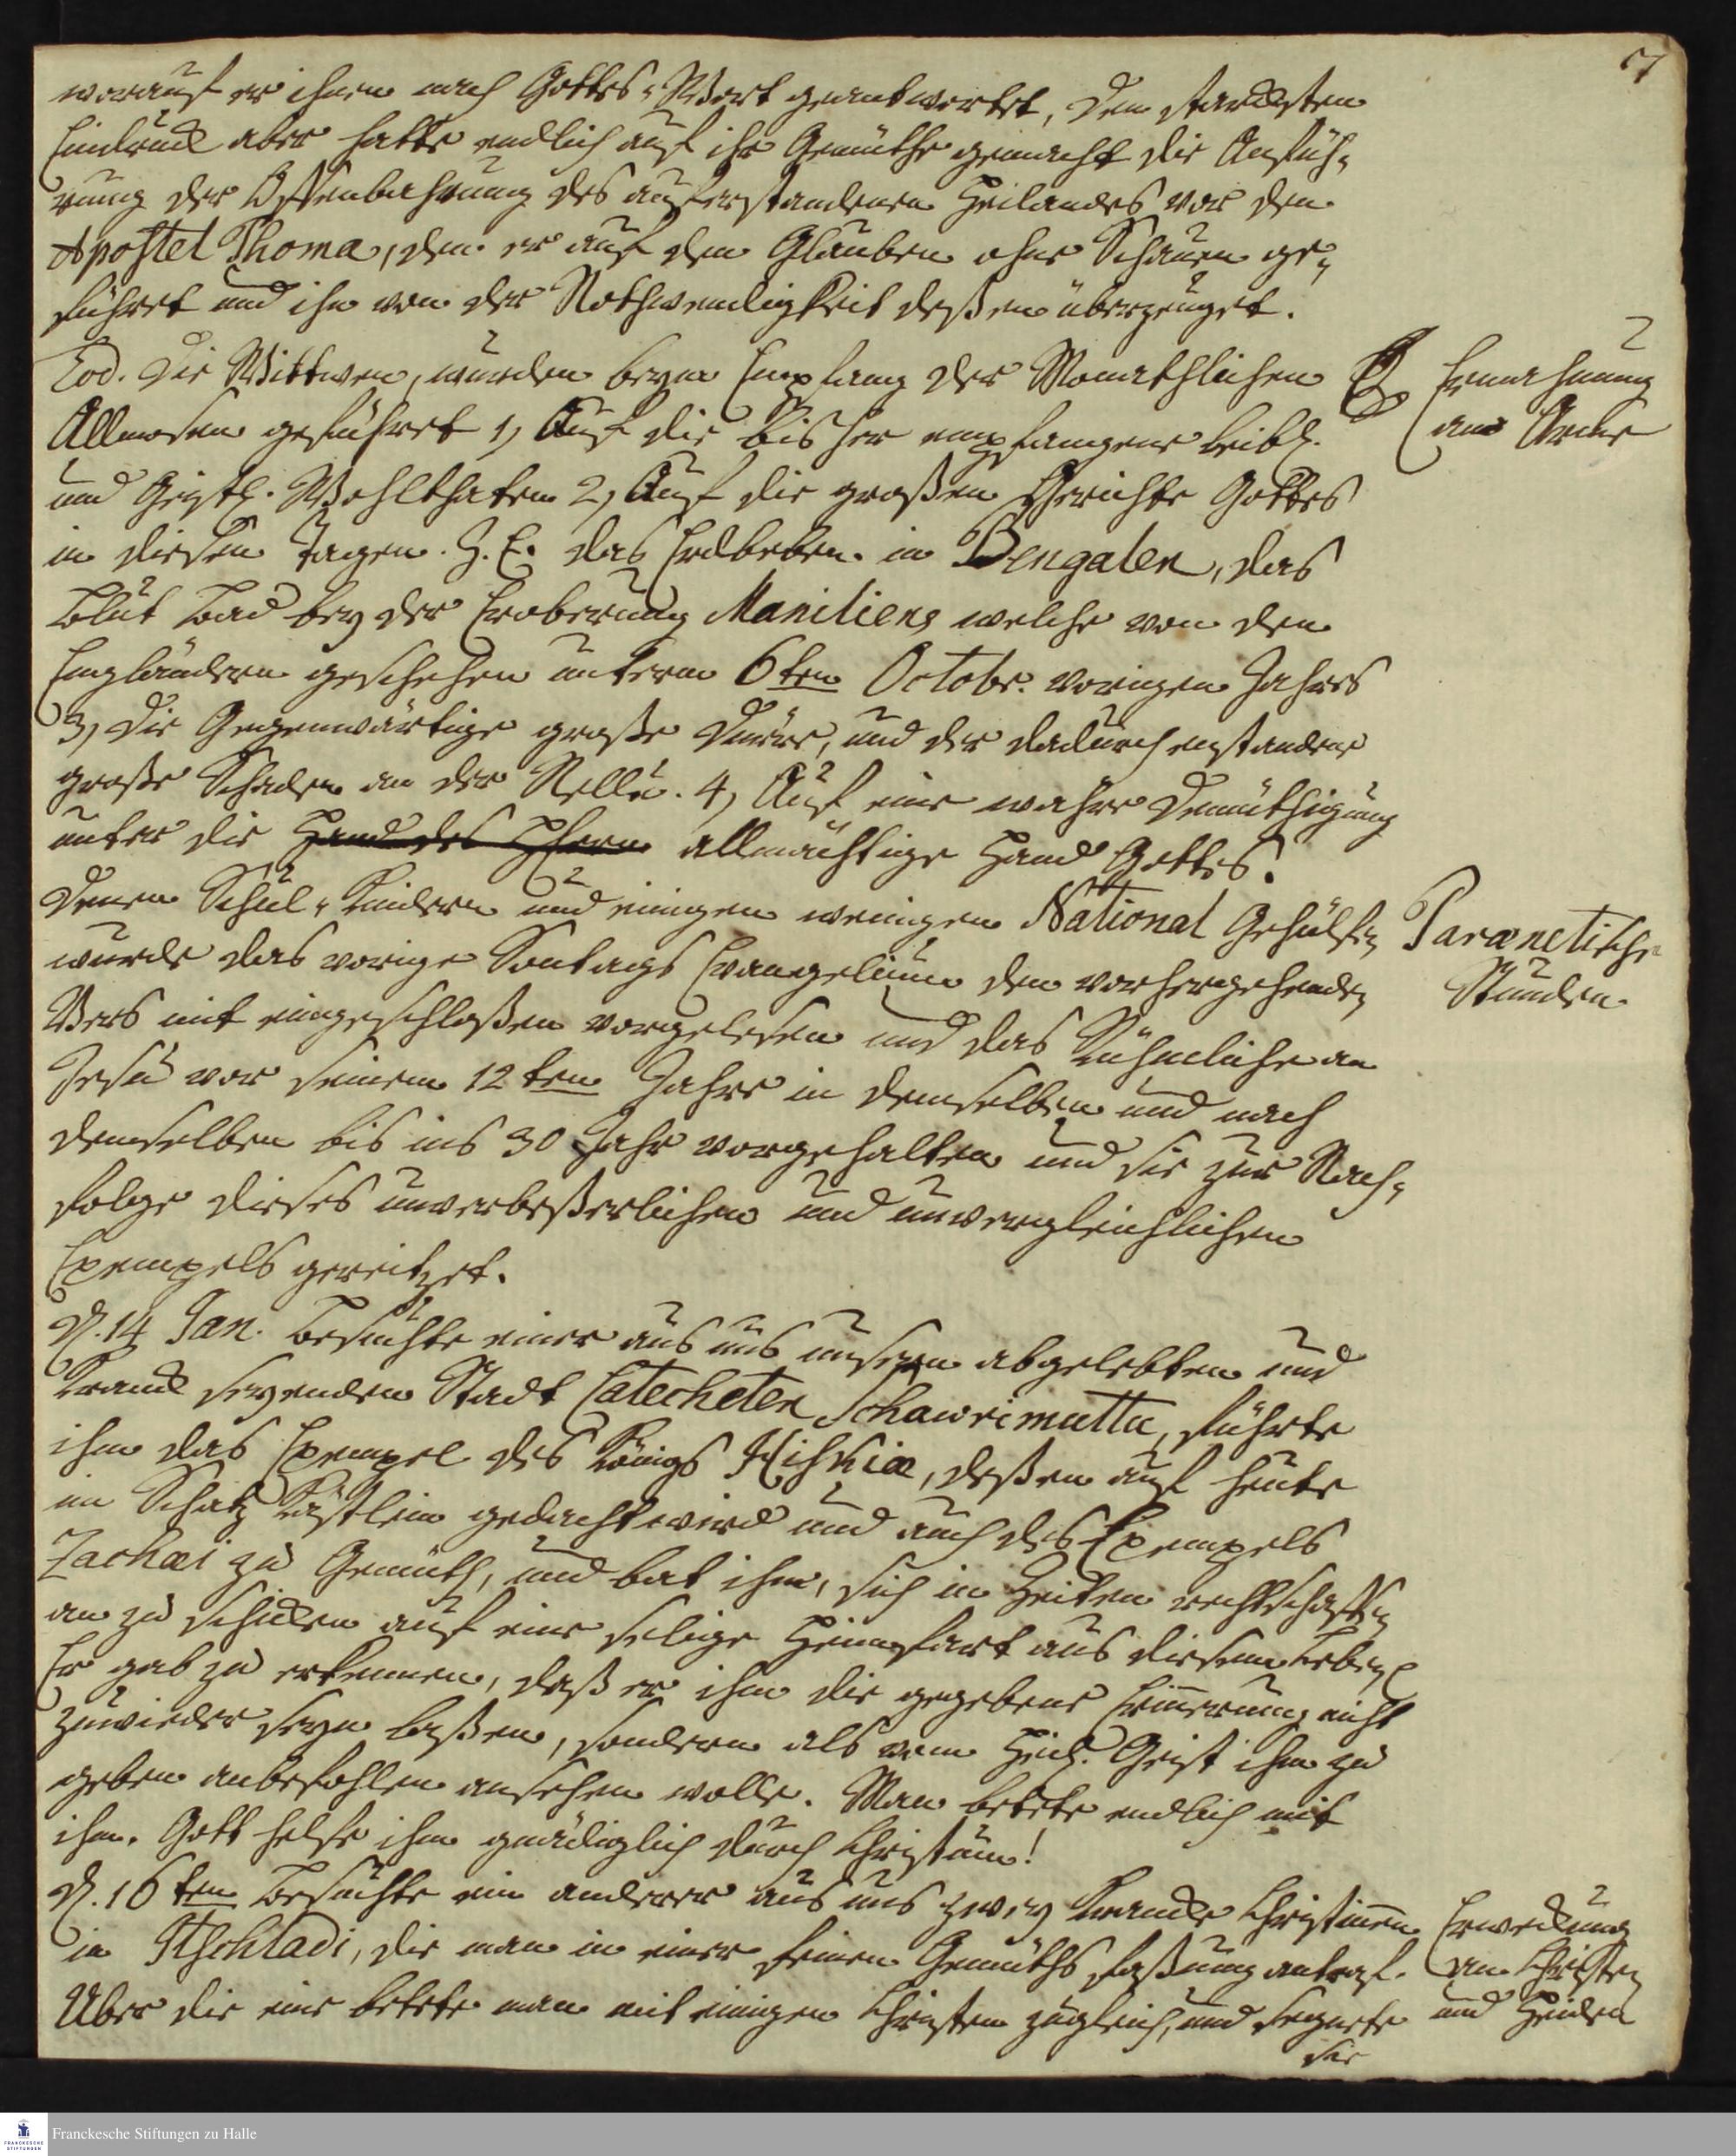 7
worauf er ihnen nach Gottes-Wort geantwortet, den starcksten
Eindruck aber hatte endlich auf ihr Gemüthe gemacht die Anfüh-
rung der Offenbahrung des auferstandenen Heilandes vor den
Apostel Thoma, den er auf den Glauben ohne Schauen ge-
führet und ihn von der Nothwendigkeit deßen überzeuget.
Eod. Die Wittwen, wurden beym Empfang der Monathlichen
Allmosen geführet 1, Auf die bisher empfangene leibl.
und Geistl. Wohlthaten 2, Auf die großen Gerichte Gottes
in diesen Tagen. Z. E. das Erdbeben in Bengalen, das
Blut Bad bey der Eroberung Maniliens welche von den
Engländern geschehen unterm 6ten Octobr. vorigen Jahres
3, Die Gegenwärtige große Dürre, und der dadurch enstandene
große Schaden an der Nellu. 4, Auf eine wahre Demüthigung
unter die Hand des HErrn allmächtige Hand Gottes.
Ermahnung
an Arme
Denen Schul-Kindern und einigen wenigen National Gehülfen
wurde das vorige Sontags Evangelium den vorhergehenden
Vers mit eingeschloßen vorgelesen und das Rühmliche an
Jesu vor seinem 12ten Jahre in demselben und nach
demselben bis ins 30 Jahr vorgehalten und sie zur Nach-
folge dieses unverbeßerlichen und unvergleichlichen
Exempels gereitzet.
Parænetische
Stunden
D. 14 Jan. Besuchte einer aus uns unsern abgelebten und
Kranck seyenden Stadt Catecheten Schawrimuttu, führte
ihm das Exempel des Königs Hiskiæ, deßen auf heute
im Schatz Kästlein gedacht wird und auch des Exempels
Zachæi zu Gemüth, und bat ihn, sich in Zeiten rechtschaffen
an zu schicken auf eine selige Heimfart aus diesem Leben
Er gab zu erkennen, daß er ihm die gegebene Erinnerung nicht
zuwieder seyn laßen, sondern als vom Heil. Geist ihm zu
geben anbefohlen ansehen wolle. Man betete endlich mit
ihm. Gott helfe ihm gnädiglich durch Christum!
D. 16ten Besuchte ein anderer aus uns zwey Krancke Christinnen
in Itschladi, die man in einer feinen Gemüths faßung antraf.
Über die eine betete man mit einigen Christen zugleich, und segnete
sie
Erweckung
an Christen
und Heiden
Franckesche Stiftungen zu Halle
FRANCKESCHE
STIFTUNGEN